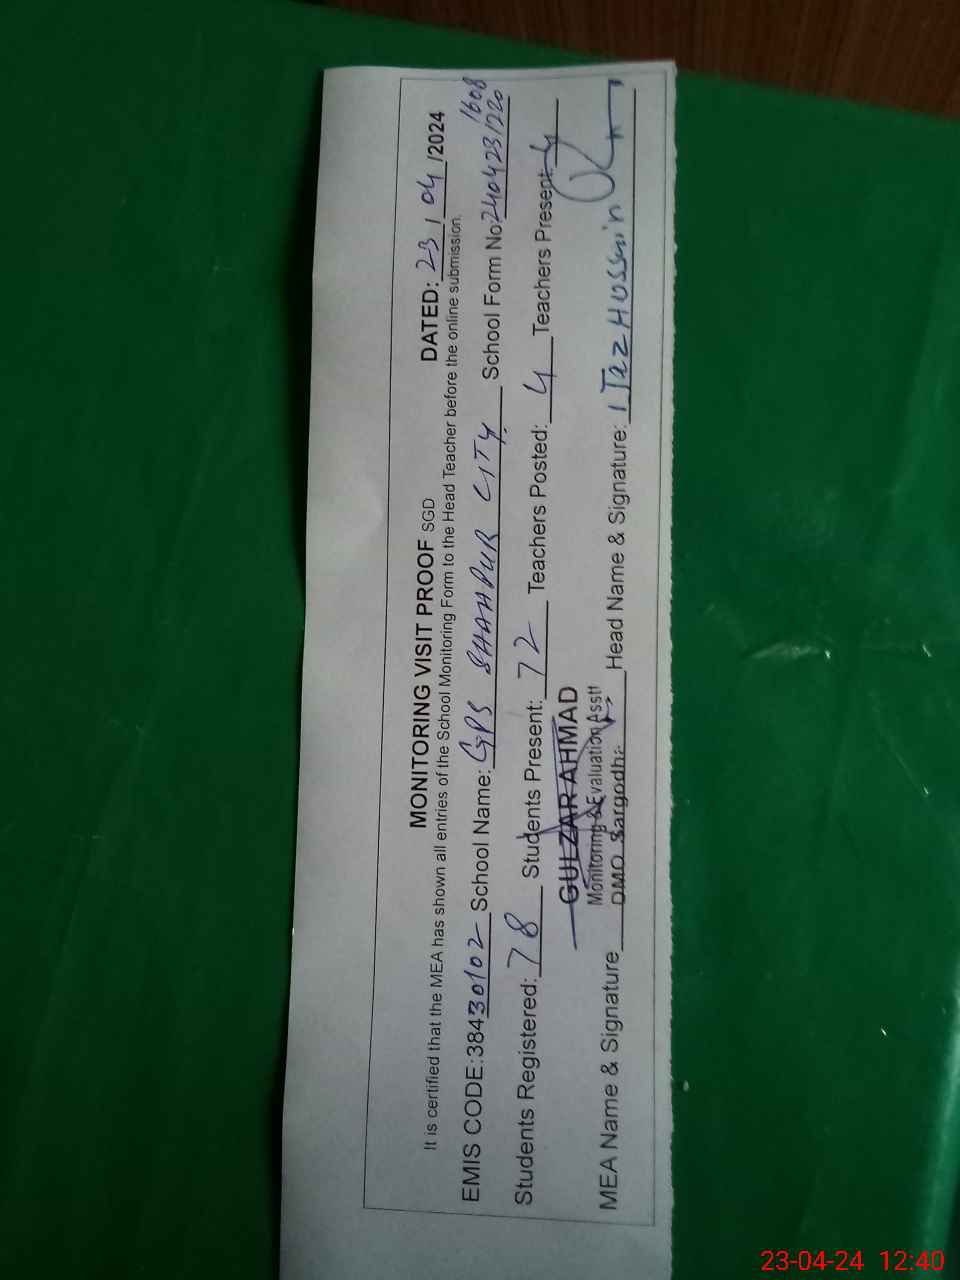 MONITORING VISIT PROOF SGD DATED: 23 / 04 /2024
It is certified that the MEA has shown all entries of the School Monitoring Form to the Head Teacher before the online submission.
1608
EMIS CODE:38430102 School Name: GPS SHAHPUR CITY School Form No:2404231220
Students Registered: 78 Students Present: 72 Teachers Posted: 4 Teachers Present: 4
GULZAR AHMAD
Monitoring & Evaluation Asstt
DMO Sargodha
MEA Name & Signature Head Name & Signature: IJaz Hussain
23-04-24 12:40